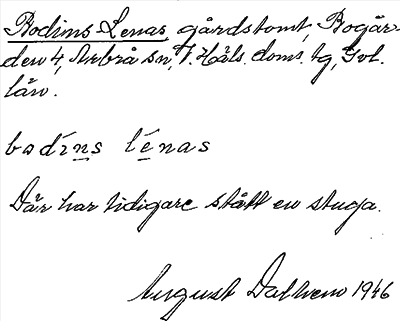 Bodins Lenas gårdstomt, Bogår-
den 4, Arbrå sn, V. Häls. doms. tg, Gvl.
län.
bodíns lénas
Där har tidigare stått en stuga.
August Dalhem 1946